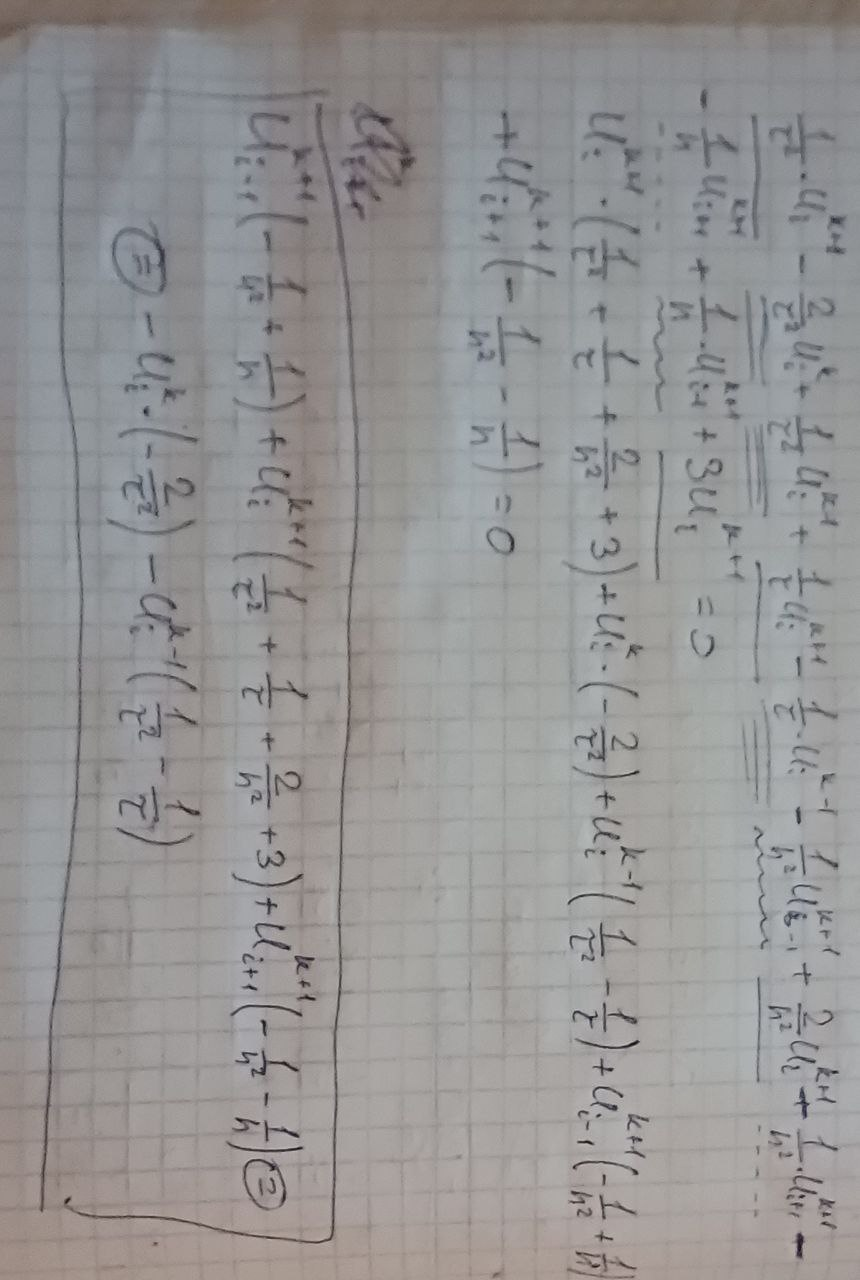 1/τ² · u_i^{k+1} - 2/τ² u_i^k + 1/τ² u_i^{k-1} + 1/τ u_i^{k+1} - 1/τ · u_i^{k-1} - 1/h² u_{i-1}^{k+1} + 2/h² u_i^{k+1} + 1/h² · u_{i+1}^{k+1} -
- 1/h u_{i+1}^{k+1} + 1/h · u_{i-1}^{k+1} + 3u_i^{k+1} = 0
u_i^{k+1} · (1/τ² + 1/τ + 2/h² + 3) + u_i^k · (-2/τ²) + u_i^{k-1} (1/τ² - 1/τ) + u_{i-1}^{k+1} (-1/h² + 1/h)
+ u_{i+1}^{k+1} (-1/h² - 1/h) = 0
u_{i-1}^{k+1} (-1/h² + 1/h) + u_i^{k+1} (1/τ² + 1/τ + 2/h² + 3) + u_{i+1}^{k+1} (-1/h² - 1/h) =
= -u_i^k · (-2/τ²) - u_i^{k-1} (1/τ² - 1/τ)